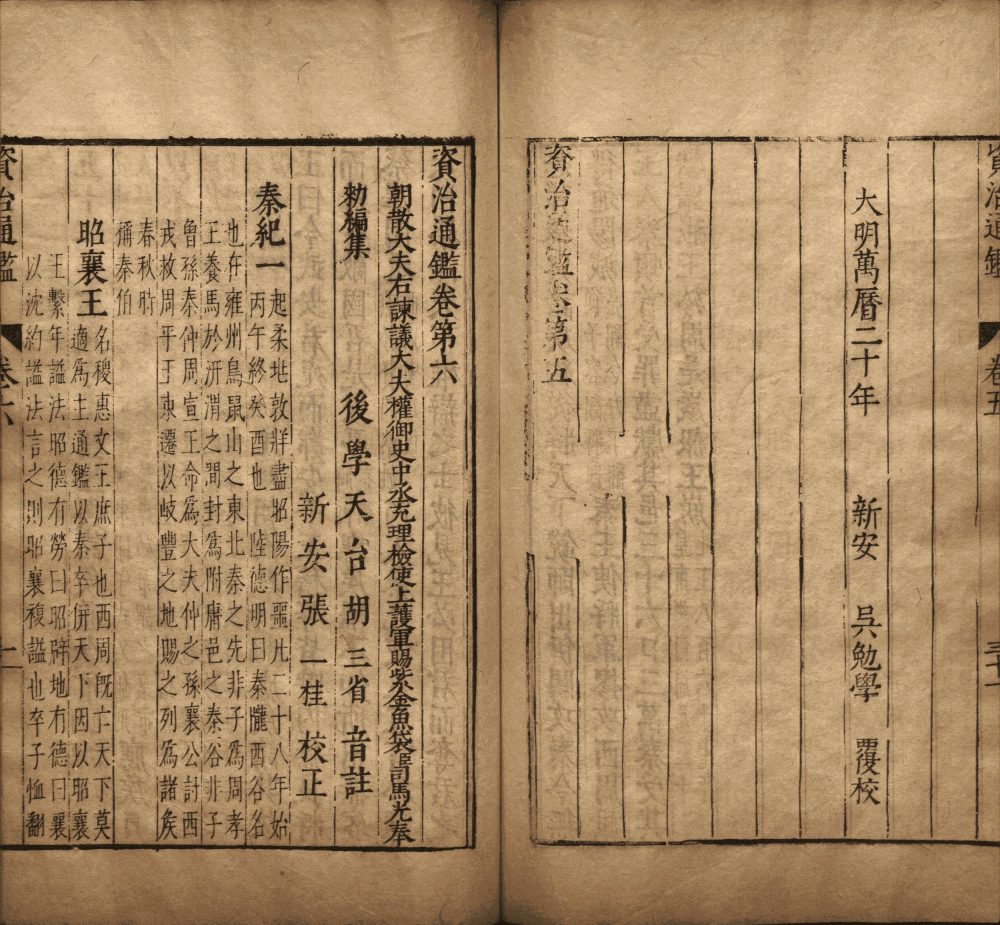 資治通鑑 卷五
大明萬曆二十年 新安 吳勉學 覆校
資治通鑑卷第五
資治通鑑卷第六
朝散大夫右諫議大夫權御史中丞充理檢使上護軍賜紫金魚袋臣司馬光奉
勑編集 後學天台胡三省音註
新安張一桂校正
秦紀一 起柔兆敦牂盡昭陽作噩凡二十八年始
丙午終癸酉也 陸德明曰秦隴西谷名
也在雍州鳥鼠山之東北秦之先非子爲周孝
王養馬於汧渭之間封爲附庸邑之秦谷非子
曾孫秦仲周宣王命爲大夫仲之孫襄公討西
戎救周平王東遷以岐豐之地賜之列爲諸矦
春秋時
稱秦伯
昭襄王 名稷惠文王庶子也西周旣亡天下莫
適爲主通鑑以秦卒併天下因以昭襄
王繫年謚法昭德有勞曰昭辟地有德曰襄
以沈約謚法言之則昭襄複謚也卒子恤翻
資治通鑑 卷六 一